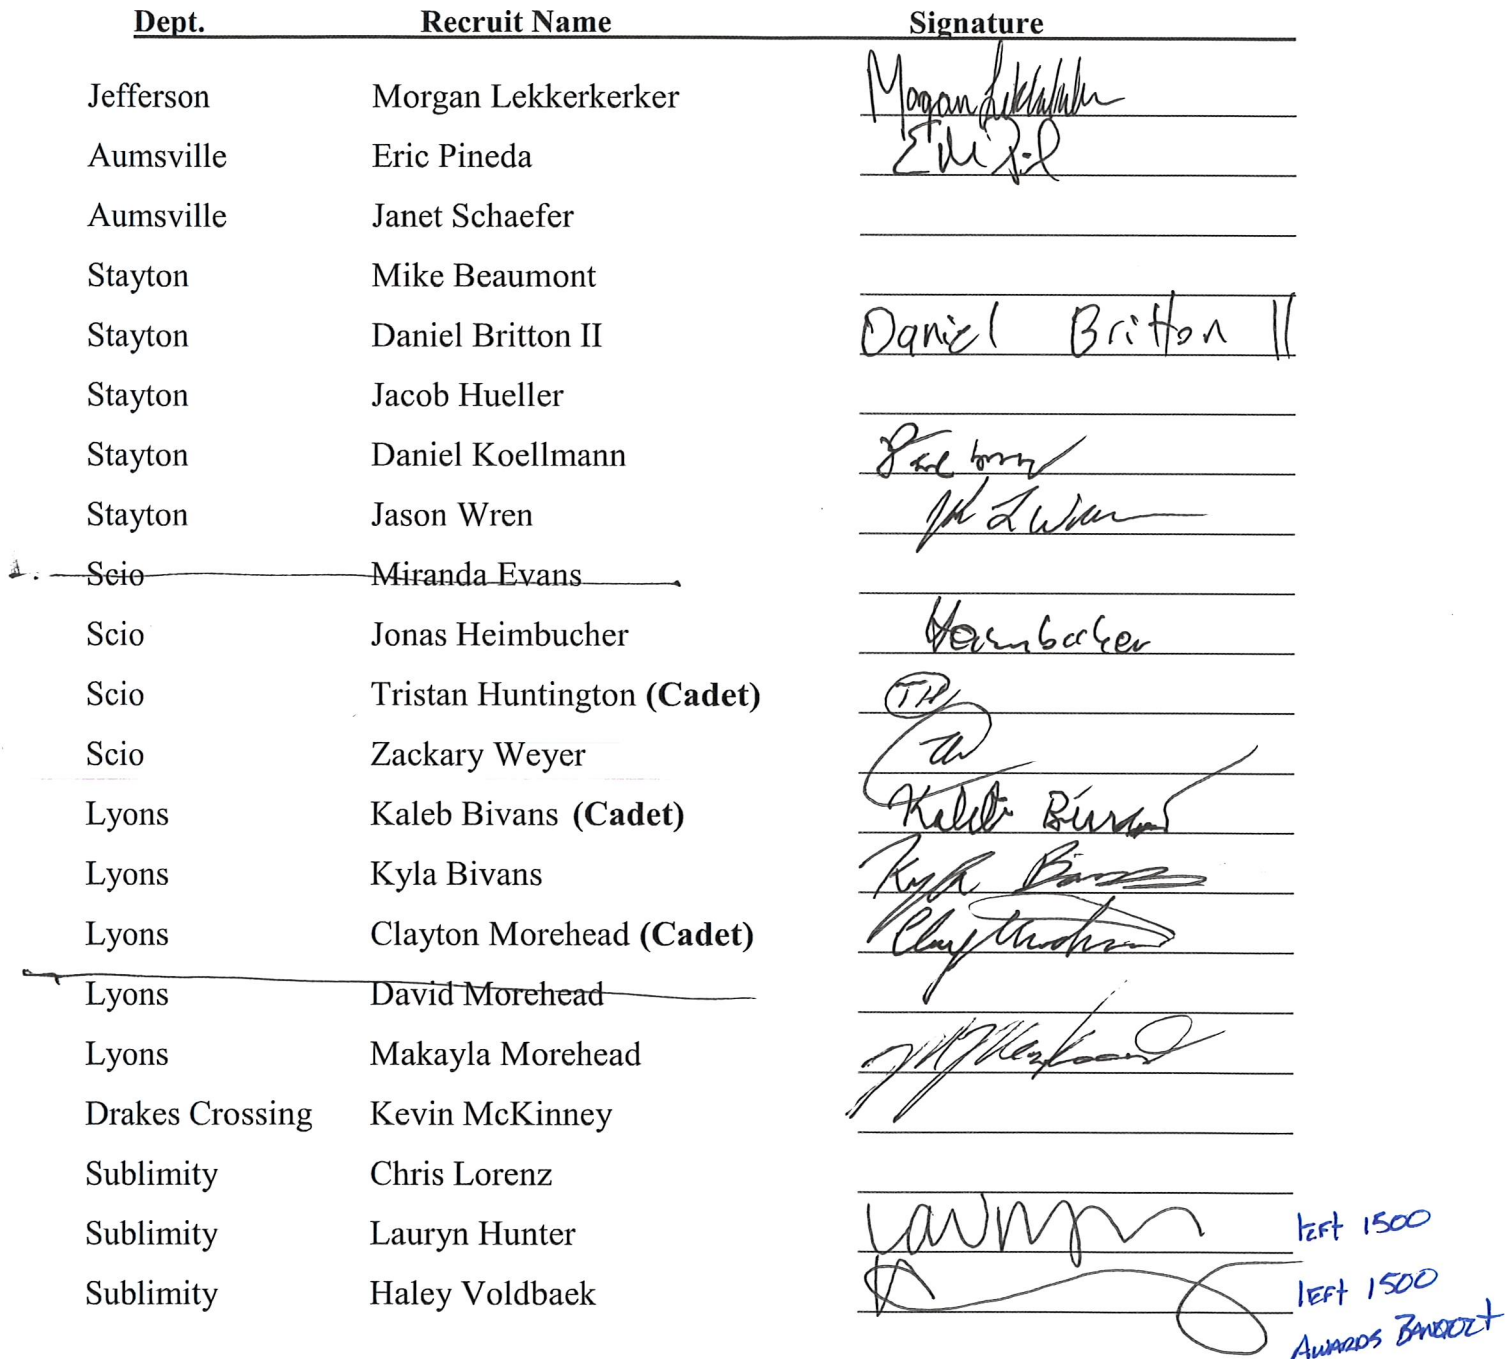 Dept. Recruit Name Signature
Jefferson Morgan Lekkerkerker Morgan
Aumsville Eric Pineda
Aumsville Janet Schaefer
Stayton Mike Beaumont
Stayton Daniel Britton II Daniel Britton II
Stayton Jacob Hueller
Stayton Daniel Koellmann
Stayton Jason Wren
Scio Miranda Evans
Scio Jonas Heimbucher
Scio Tristan Huntington (Cadet) TH
Scio Zackary Weyer
Lyons Kaleb Bivans (Cadet) Kaleb Bivans
Lyons Kyla Bivans Kyla Bivans
Lyons Clayton Morehead (Cadet)
Lyons David Morehead
Lyons Makayla Morehead
Drakes Crossing Kevin McKinney
Sublimity Chris Lorenz
Sublimity Lauryn Hunter left 1500
Sublimity Haley Voldbaek left 1500
AWARDS BANQUET